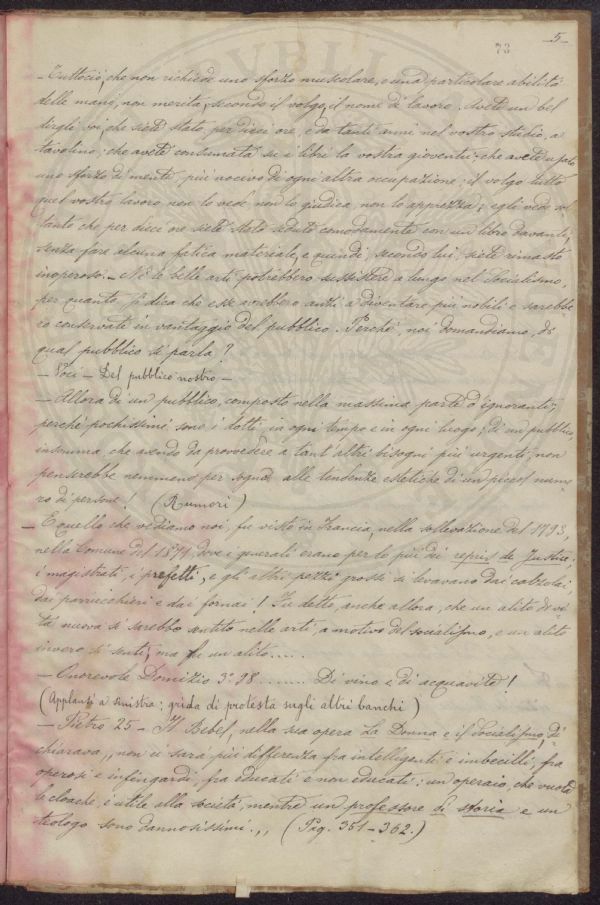 _5_
73
_ Tuttociò, che non richiede uno sforzo muscolare, o una particolare abilità
delle mani, non merita, secondo il volgo, il nome di lavoro. Avete un bel
dirgli voi, che siete stato per dieci ore, e da tanti anni nel vostro studio, a
tavolino; che avete consumata su i libri la vostra gioventù; che avete
uno sforzo di mente, più nocivo di ogni altra occupazione; il volgo tutto
quel vostro lavoro non lo vede non lo giudica, non lo apprezza; egli vede sol
tanto che per dieci ore siete stato seduto comodamente con un libro davanti,
senza fare alcuna fatica materiale, e quindi, secondo lui, siete rimasto
inoperoso. _ Nè le belle arti potrebbero sussistere a lungo nel Socialismo,
per quanto si dica che esse avrebbero anzi a diventare più nobili e sarebbe
ro conservate in vantaggio del pubblico. Perché, noi domandiamo, di
qual pubblico si parla?
_ Voci _ Del pubblico nostro _
_ Allora di un pubblico, composto nella massima parte d'ignoranti;
perché pochissimi sono i dotti, in ogni tempo e in ogni luogo; di un pubblico,
insomma, che avendo da provvedere a tant'altri bisogni più urgenti, non
penserebbe nemmeno per sogno alle tendenze estetiche di un piccol nume
ro di persone! (Rumori)
_ E quello che vediamo noi, fu visto in Francia, nella sollevazione del 1793,
nella Comune del 1871 dove i generali erano per lo più dei repris de Justice;
i magistrati, i prefetti, e gli altri pezzi grossi si levavano dai calzolai,
dai parrucchieri e dai fornai! Fu detto, anche allora, che un alito di vi
ta nuova si sarebbe sentito nelle arti, a motivo del socialismo, e un alito
invero si sentì, ma fu un alito.....
_ Onorevole Domizio 3°. 98 ........ Di vino e di acquavite!
(Applausi a sinistra; grida di protesta sugli altri banchi)
_ Pietro 25 _ Il Bebel, nella sua opera La Donna e il Socialismo, di
chiarava,, non ci sarà più differenza fra intelligenti e imbecilli, fra
operosi e infingardi, fra educati e non educati: un operaio, che vuota
le cloache, è utile alla società, mentre un professore di storia e un
teologo sono dannosissimi.,, (Pag. 351-362.)